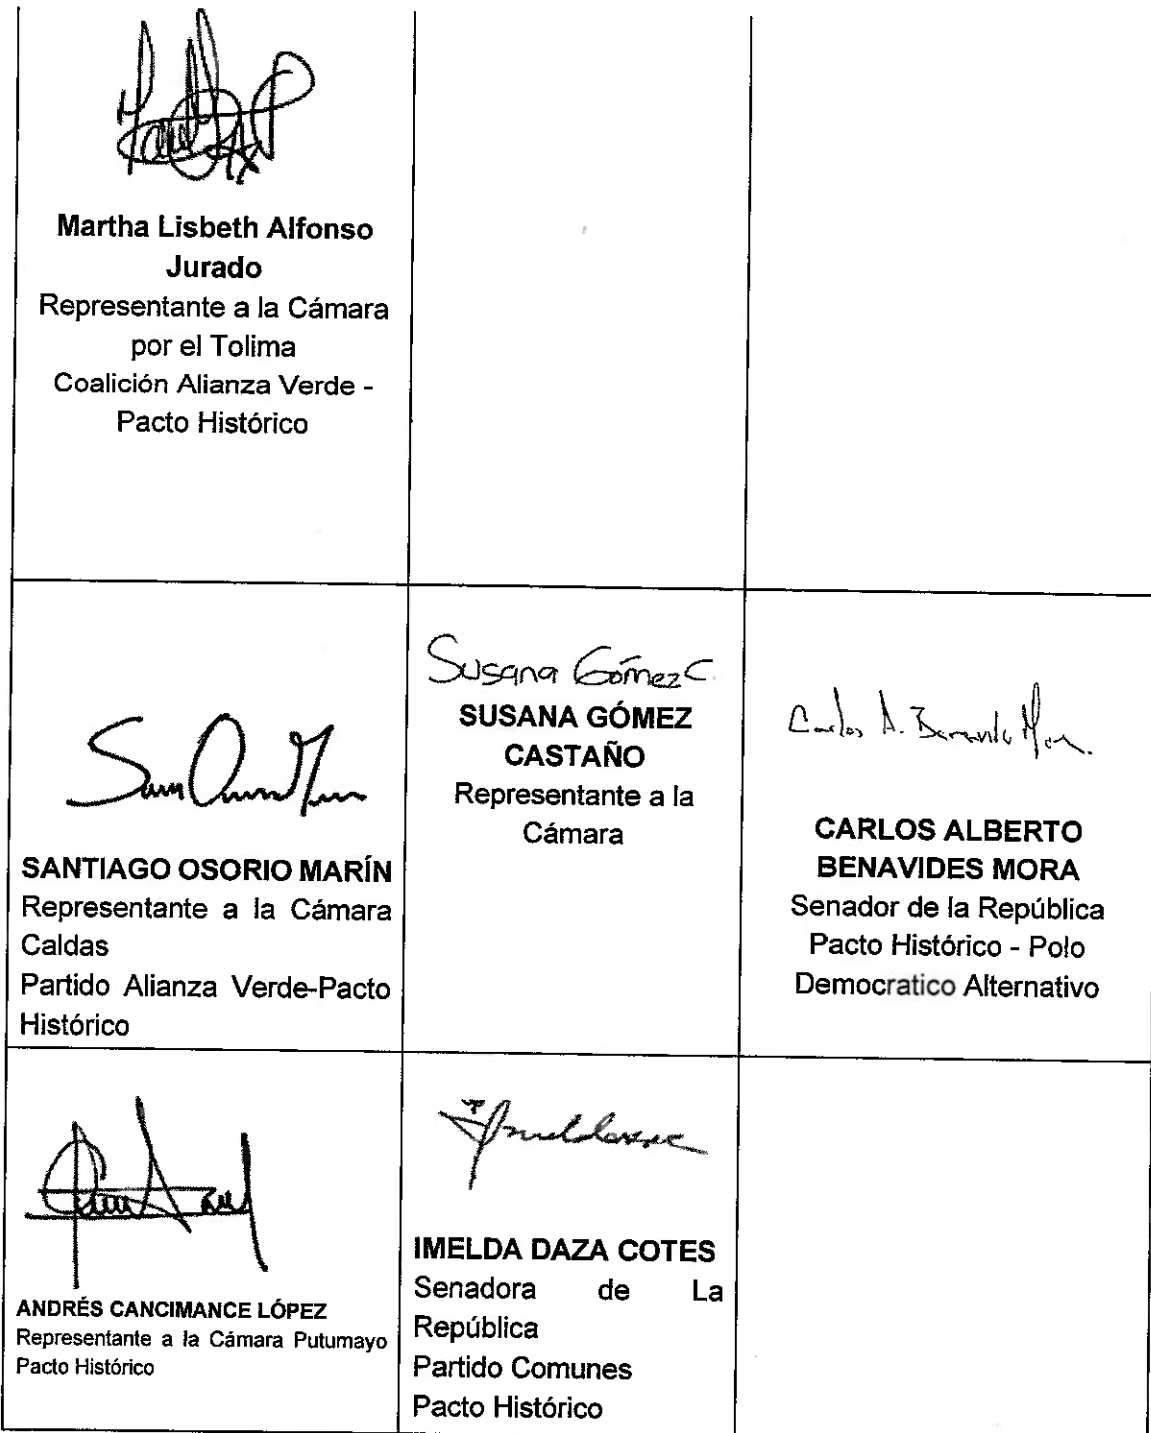 Martha Lisbeth Alfonso
Jurado
Representante a la Cámara
por el Tolima
Coalición Alianza Verde -
Pacto Histórico
SANTIAGO OSORIO MARÍN
Representante a la Cámara
Caldas
Partido Alianza Verde-Pacto
Histórico
Susana Gómez C.
SUSANA GÓMEZ
CASTAÑO
Representante a la
Cámara
Carlos A. Benavides Mora
CARLOS ALBERTO
BENAVIDES MORA
Senador de la República
Pacto Histórico - Polo
Democratico Alternativo
ANDRÉS CANCIMANCE LÓPEZ
Representante a la Cámara Putumayo
Pacto Histórico
IMELDA DAZA COTES
Senadora de La
República
Partido Comunes
Pacto Histórico